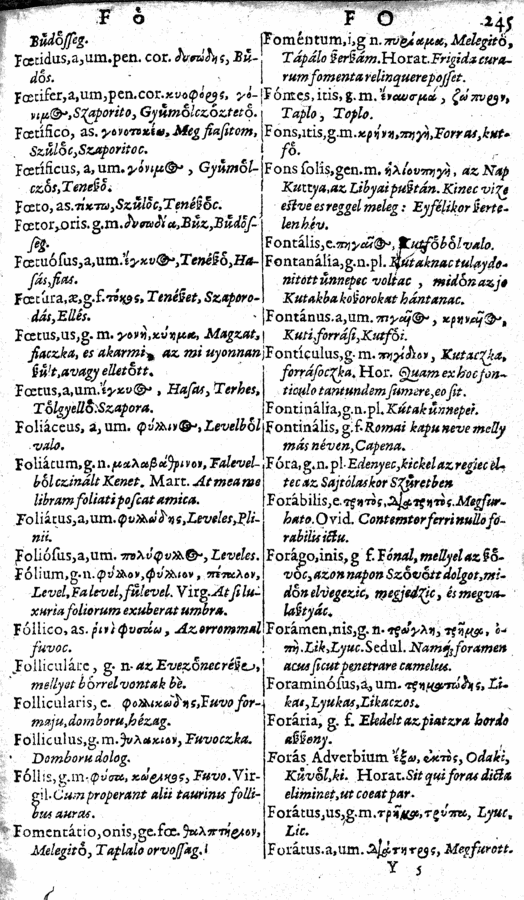 F ő
F O 245
Bűdősseg.
Fœtidus, a, um. pen. cor. δυσώδης, Bű-
dős.
Fœtifer, a, um, pen. cor. κυοφόρος, γό-
νιμ©, Szaporito, Gyűmőlczőztető.
Fœtifico, as. γονοτοκέω, Meg fiasitom,
Szűlőc, Szaporitoc.
Fœtificus, a, um. γόνιμ©, Gyűmől-
czős, Teneßő.
Fœto, as. τίκτω, Szűlőc, Tenéßőc.
Fœtor, oris. g. m. δυσωδία, Bűz, Bűdős-
seg.
Fœtuósus, a, um. ἔγκυ©, Teneßő, Ha-
sás, fias.
Fœtúra, æ, g. f. τόκος, Tenéßet, Szaporo-
dás, Ellés.
Fœtus, us, g. m. γονὴ, κύημα, Magzat,
fiaczka, es akarmi, az mi uyonnan
ßűlt, avagy elletőtt.
Fœtus, a, um. ἔγκυ©, Hasas, Terhes,
Tőlgyellő: Szapora.
Foliáceus, a, um. φύλλιν©, Levelből
valo.
Foliátum, g. n. μαλαβάθρινον, Falevel-
ből czinált Kenet. Mart. At mea me
libram foliati poscat amica.
Foliátus, a, um. φυλλώδης, Leveles, Pli-
nii.
Foliósus, a, um. πολύφυλλ©, Leveles.
Fólium, g. n. φύλλον, φύλλιον, πέταλον,
Level, Fa level, fűlevel. Virg. At si lu-
xuria foliorum exuberat umbra.
Fóllico, as. ῥινὶ φυσάω, Az orrommal
fuvoc.
Folliculáre, g. n. az Evezőnec réße,
mellyet bőrrel vontak bè.
Follicularis, e. φολλικώδης, Fuvo for-
maju, domboru, hézag.
Folliculus, g. m. θυλακιον, Fuvoczka.
Domboru dolog.
Fóllis, g. m. φύσα, κώρυκος, Fuvo. Vir-
gil. Cum properant alii taurinis folli-
bus auras.
Fomentátio, onis, ge. fœ. θαλπτήριον,
Melegitő, Taplalo orvossag.
Foméntum, i, g n. πυρίαμα, Melegitő,
Tápálo ßerßám. Horat. Frigida cura-
rum fomenta relinquere posset.
Fómes, itis, g. m. ἔναυσμά, ζώπυρον,
Taplo, Toplo.
Fons, itis, g. m. κρήνη, πηγὴ, Forras, kut-
fő.
Fons solis, gen. m. ἡλίου πηγὴ, az Nap
Kuttya, az Libyai pußtán. Kinec vize
estve es reggel meleg: Eyfélikor ßerte-
len hév.
Fontális, e. πηγαῖ©, Kutfőből valo.
Fontanália, g. n. pl. Kutaknac tulaydo-
nitott ünnepec voltac, midőn azjo
Kutakba koßorokat hántanac.
Fontánus. a, um. πηγαῖ©, κρηναῖ©,
Kuti, forrási, Kutfői.
Fontículus, g. m. πηγίδιον, Kutaczka,
forrásoczka, Hor. Quam ex hoc fon-
ticulo tantundem sumere, eo sit.
Fontinália, g. n. pl. Kútak ünnepei.
Fontinális, g. f. Romai kapu neve melly
más néven, Capena.
Fóra, g. n. pl. Edenyec, kickel az regiec el-
tec az Sajtólaskor Szüretben
Forábilis, e. τρητὸς, διατρητὸς. Megfur-
hato. Ovid. Contemtor ferri nullo fo-
rabilis ictu.
Forágo, inis, g f. Fónal, mellyel az ßő-
vőc, azon napon Szővőtt dolgot, mi-
dőn elvegezic, megjedzic, és megva-
laßtyác.
Forámen, nis, g. n. τρώγλη, τρῆμα, ὀ-
πὴ. Lik, Lyuc. Sedul. Namq; foramen
acus sicut penetrare camelus.
Foraminósus, a, um. τρηματώδης, Li-
kas, Lyukas, Likaczos.
Forária, g. f. Eledelt az piatzra hordo
aßßony.
Forás Adverbium ἔξω, ἐκτὸς, Odaki,
Kűvől, ki. Horat. Sit qui foras dicta
eliminet, ut coeat par.
Forátus, us, g. m. τρῆμα, τρύπα, Lyuc,
Lic.
Forátus. a, um. διάτρητος, Megfurott.
Y 5